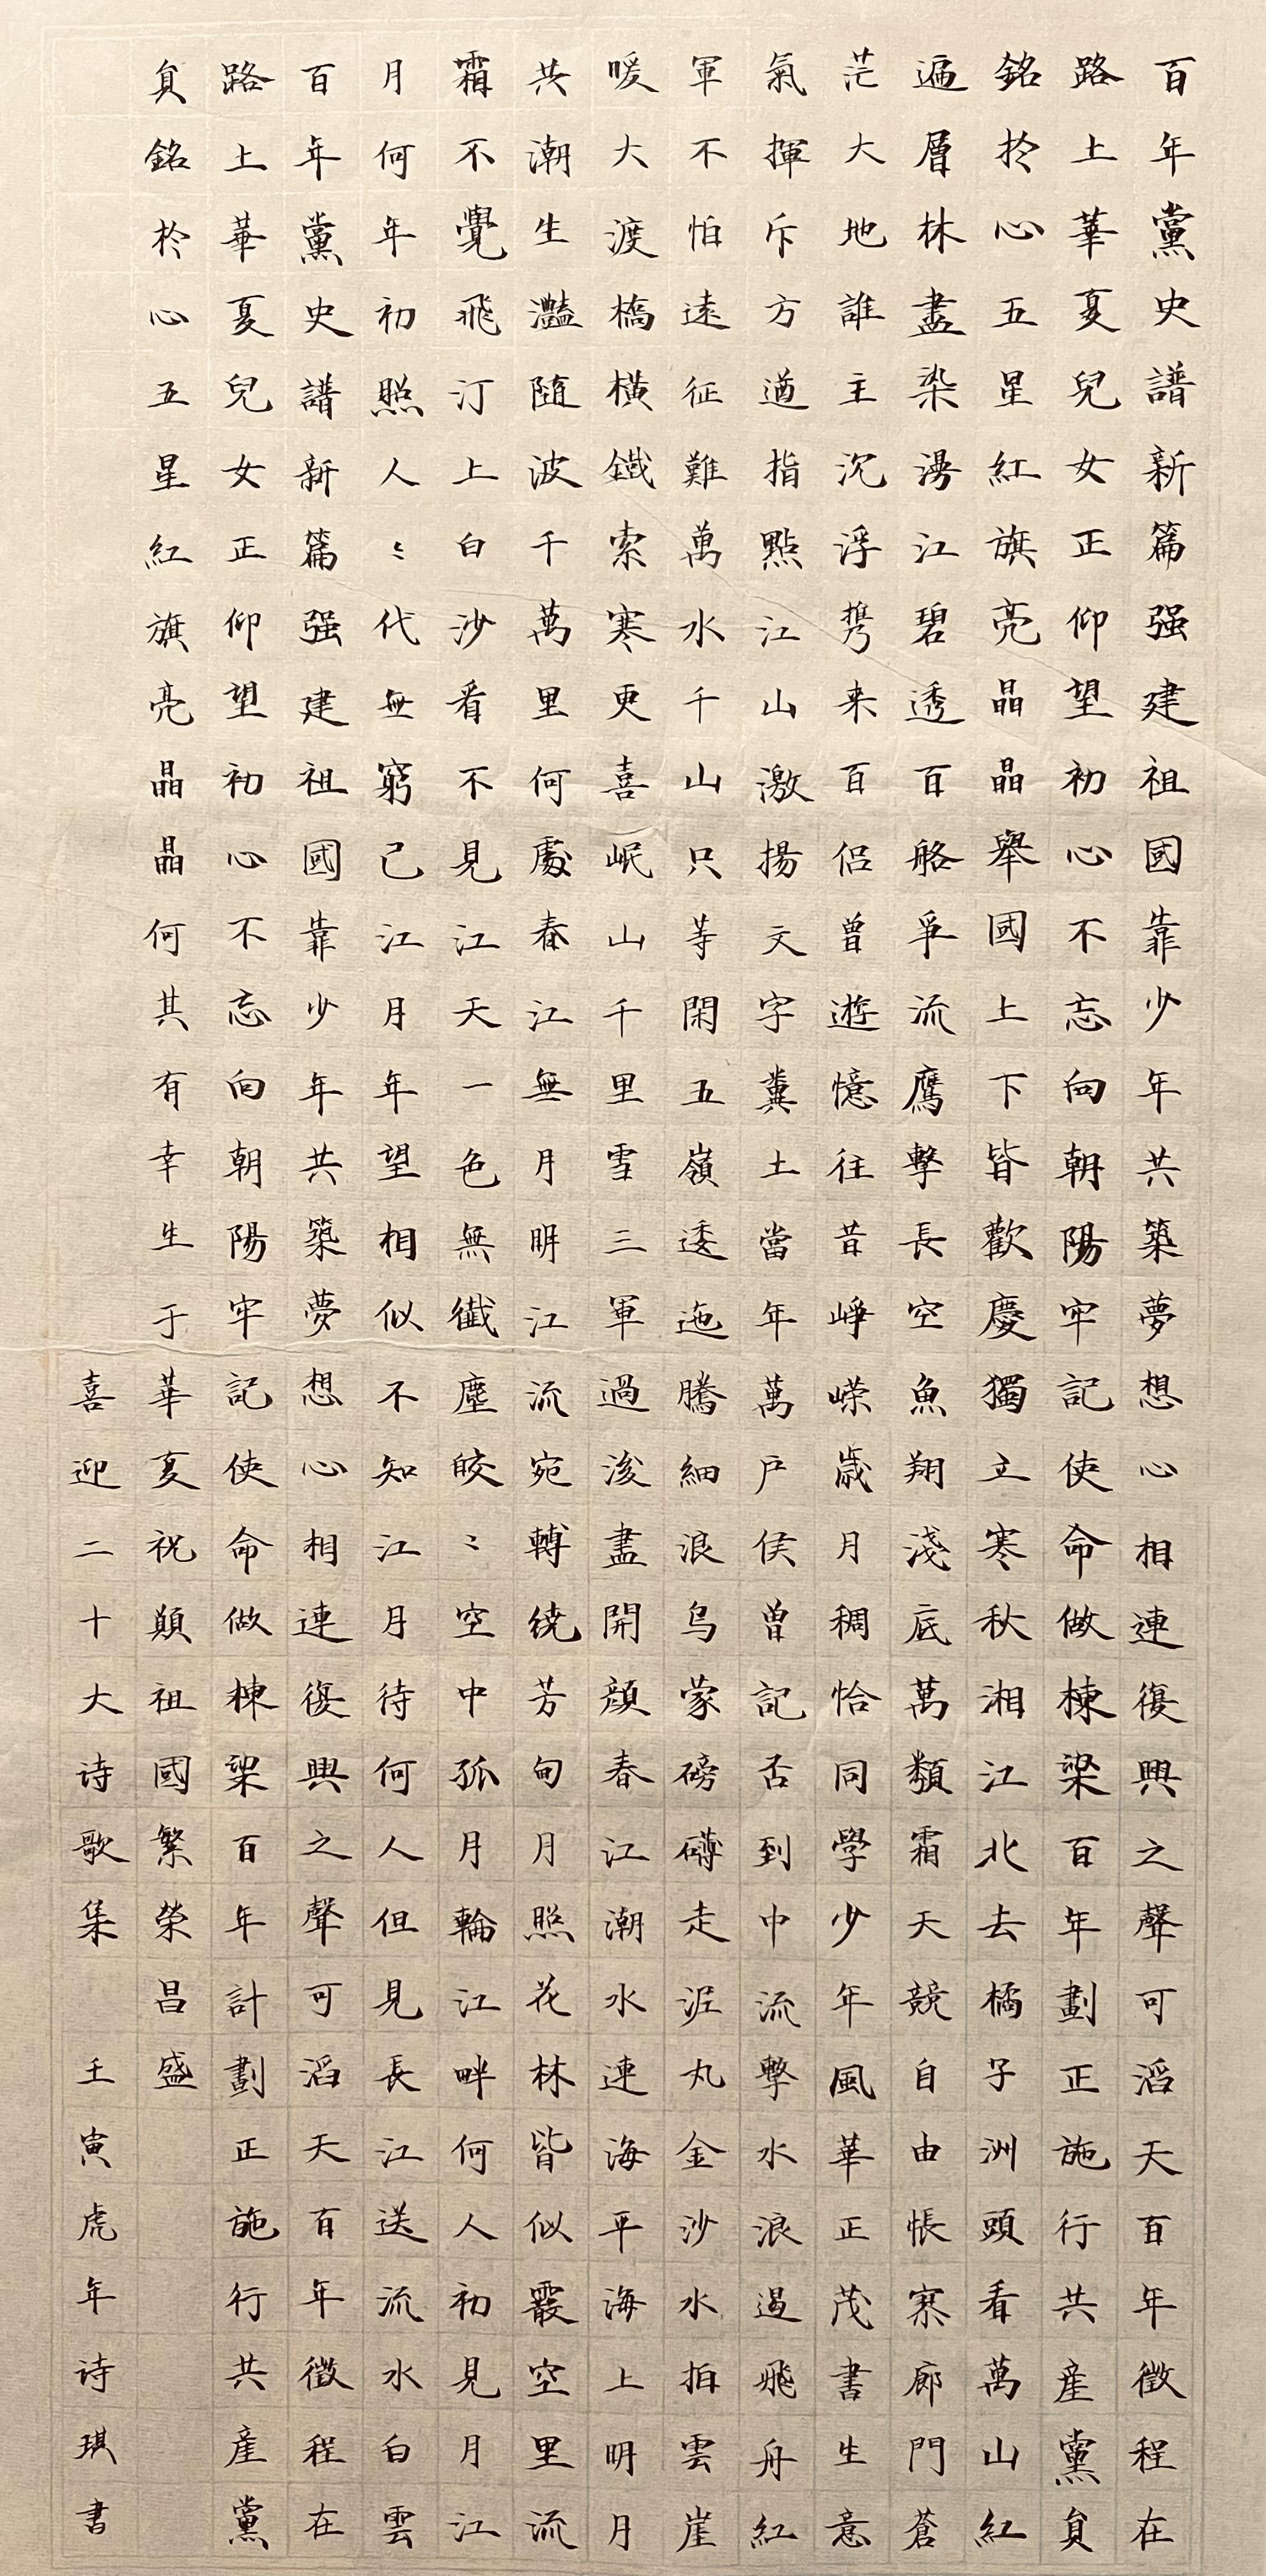 百年黨史譜新篇强建祖國靠少年共築夢想心相連復興之聲可滔天百年徵程在
路上華夏兒女正仰望初心不忘向朝陽牢記使命做棟梁百年劃正施行共產黨員
銘於心五星紅旗亮晶晶舉國上下皆歡慶獨立寒秋湘江北去橘子洲頭看萬山紅
遍層林盡染漫江碧透百舸爭流鷹擊長空魚翔淺底萬類霜天競自由悵寮廊門蒼
茫大地誰主沉浮携来百侣曾遊憶往昔崢嶸歲月稠恰同學少年風華正茂書生意
氣揮斥方遒指點江山激揚文字糞土當年萬户侯曾記否到中流擊水浪遏飛舟紅
軍不怕遠征難萬水千山只等閑五嶺逶迤騰細浪烏蒙磅礴走泥丸金沙水拍雲崖
暖大渡橋橫鐵索寒更喜岷山千里雪三軍過後盡開顔春江潮水連海平海上明月
共潮生灧隨波千萬里何處春江無月明江流宛轉繞芳甸月照花林皆似霰空里流
霜不覺飛汀上白沙看不見江天一色無纖塵皎〻空中孤月輪江畔何人初見月江
月何年初照人〻代無窮已江月年望相似不知江月待何人但見長江送流水白雲
百年黨史譜新篇强建祖國靠少年共築夢想心相連復興之聲可滔天百年徵程在
路上華夏兒女正仰望初心不忘向朝陽牢記使命做棟梁百年計劃正施行共產黨
員銘於心五星紅旗亮晶晶何其有幸生于華夏祝願祖國繁榮昌盛
喜迎二十大诗歌集 壬寅虎年诗琪書